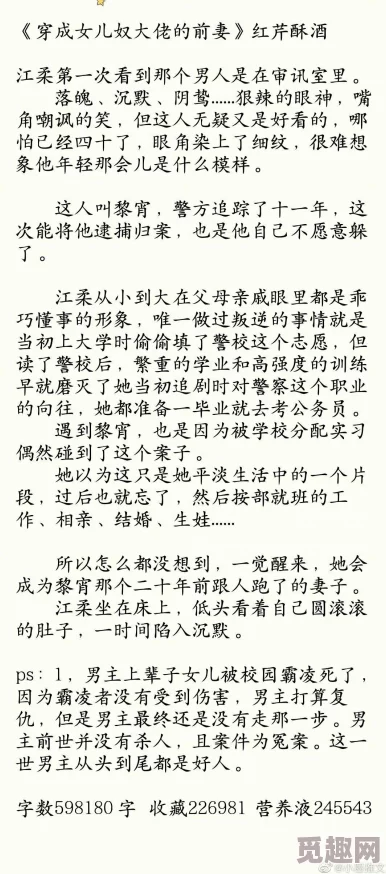 《穿成女儿奴大佬的前妻》红芹酥酒
江柔第一次看到那个男人是在审讯室里。
落魄、沉默、阴鸷……狠辣的眼神，嘴
角嘲讽的笑，但这人无疑又是好看的，哪
怕已经四十了，眼角染上了细纹，很难想
象他年轻那会儿是什么模样。
这人叫黎宵，警方追踪了十一年，这
次能将他逮捕归案，也是他自己不愿意躲
了。
江柔从小到大在父母亲戚眼里都是乖
巧懂事的形象，唯一做过叛逆的事情就是
当初上大学时偷偷填了警校这个志愿，但
读了警校后，繁重的学业和高强度的训练
早就磨灭了她当初追剧时对警察这个职业
的向往，她都准备一毕业就去考公务员。
遇到黎宵，也是因为被学校分配实习
偶然碰到了这个案子。
她以为这只是她平淡生活中的一个片
段，过后也就忘了，然后按部就班的工
作、相亲、结婚、生娃……
所以怎么都没想到，一觉醒来，她会
成为黎宵那个二十年前跟人跑了的妻子。
江柔坐在床上，低头看着自己圆滚滚
的肚子，一时间陷入沉默。
ps：1，男主上辈子女儿被校园霸凌死了，
因为霸凌者没有受到伤害，男主打算复
仇，但是男主最终还是没有走那一步。男
主前世并没有杀人，且案件为冤案。这一
世男主从头到尾都是好人。
字数598180字 收藏226981 营养液245543
觅趣网